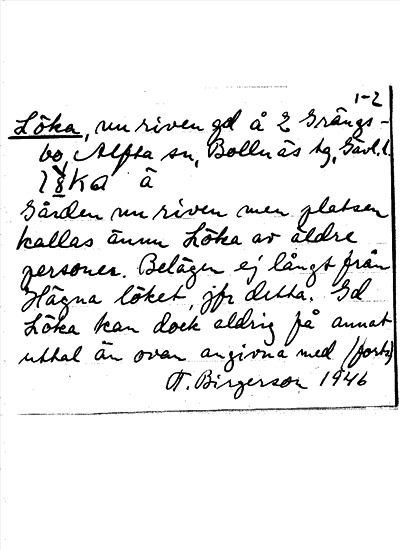 1-2
Löka, nu riven gd å 2 Grängs-
bo, Alfta sn, Bollnäs tg, Gävl. l.
å
Gården nu riven men platsen
kallas ännu Löka av äldre
personer. Belägen ej långt från
Hägna löket, jfr detta. Gd
Löka kan dock aldrig få annat
uttal än ovan angivna med (forts)
T. Birgerson 1946